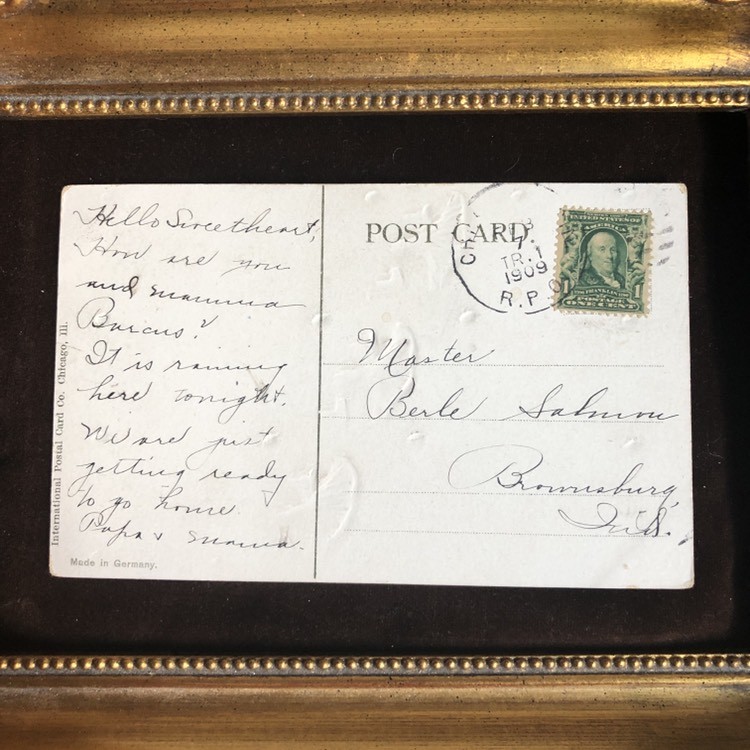 Hello Sweetheart,
How are you
and mamma
Barcus?
It is raining
here tonight.
We are just
getting ready
to go home.
Papa & mama.
International Postal Card Co. Chicago, Ill.
Made in Germany.
POST CARD
TR. 1
1909
R.P.O
UNITED STATES OF
AMERICA
1 FRANKLIN 1
POSTAGE
ONE CENT
Master
Berle Salmon
Brownsburg,
Ind.